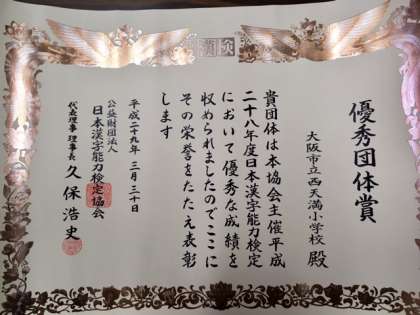 優秀団体賞
大阪市立西天満小学校 殿
貴団体は本協会主催平成
二十八年度日本漢字能力検定
において優秀な成績を
収められましたのでここに
その栄誉をたたえ表彰
します
平成二十九年 三月 三十日
公益財団法人
日本漢字能力検定協会
代表理事 理事長 久保浩史